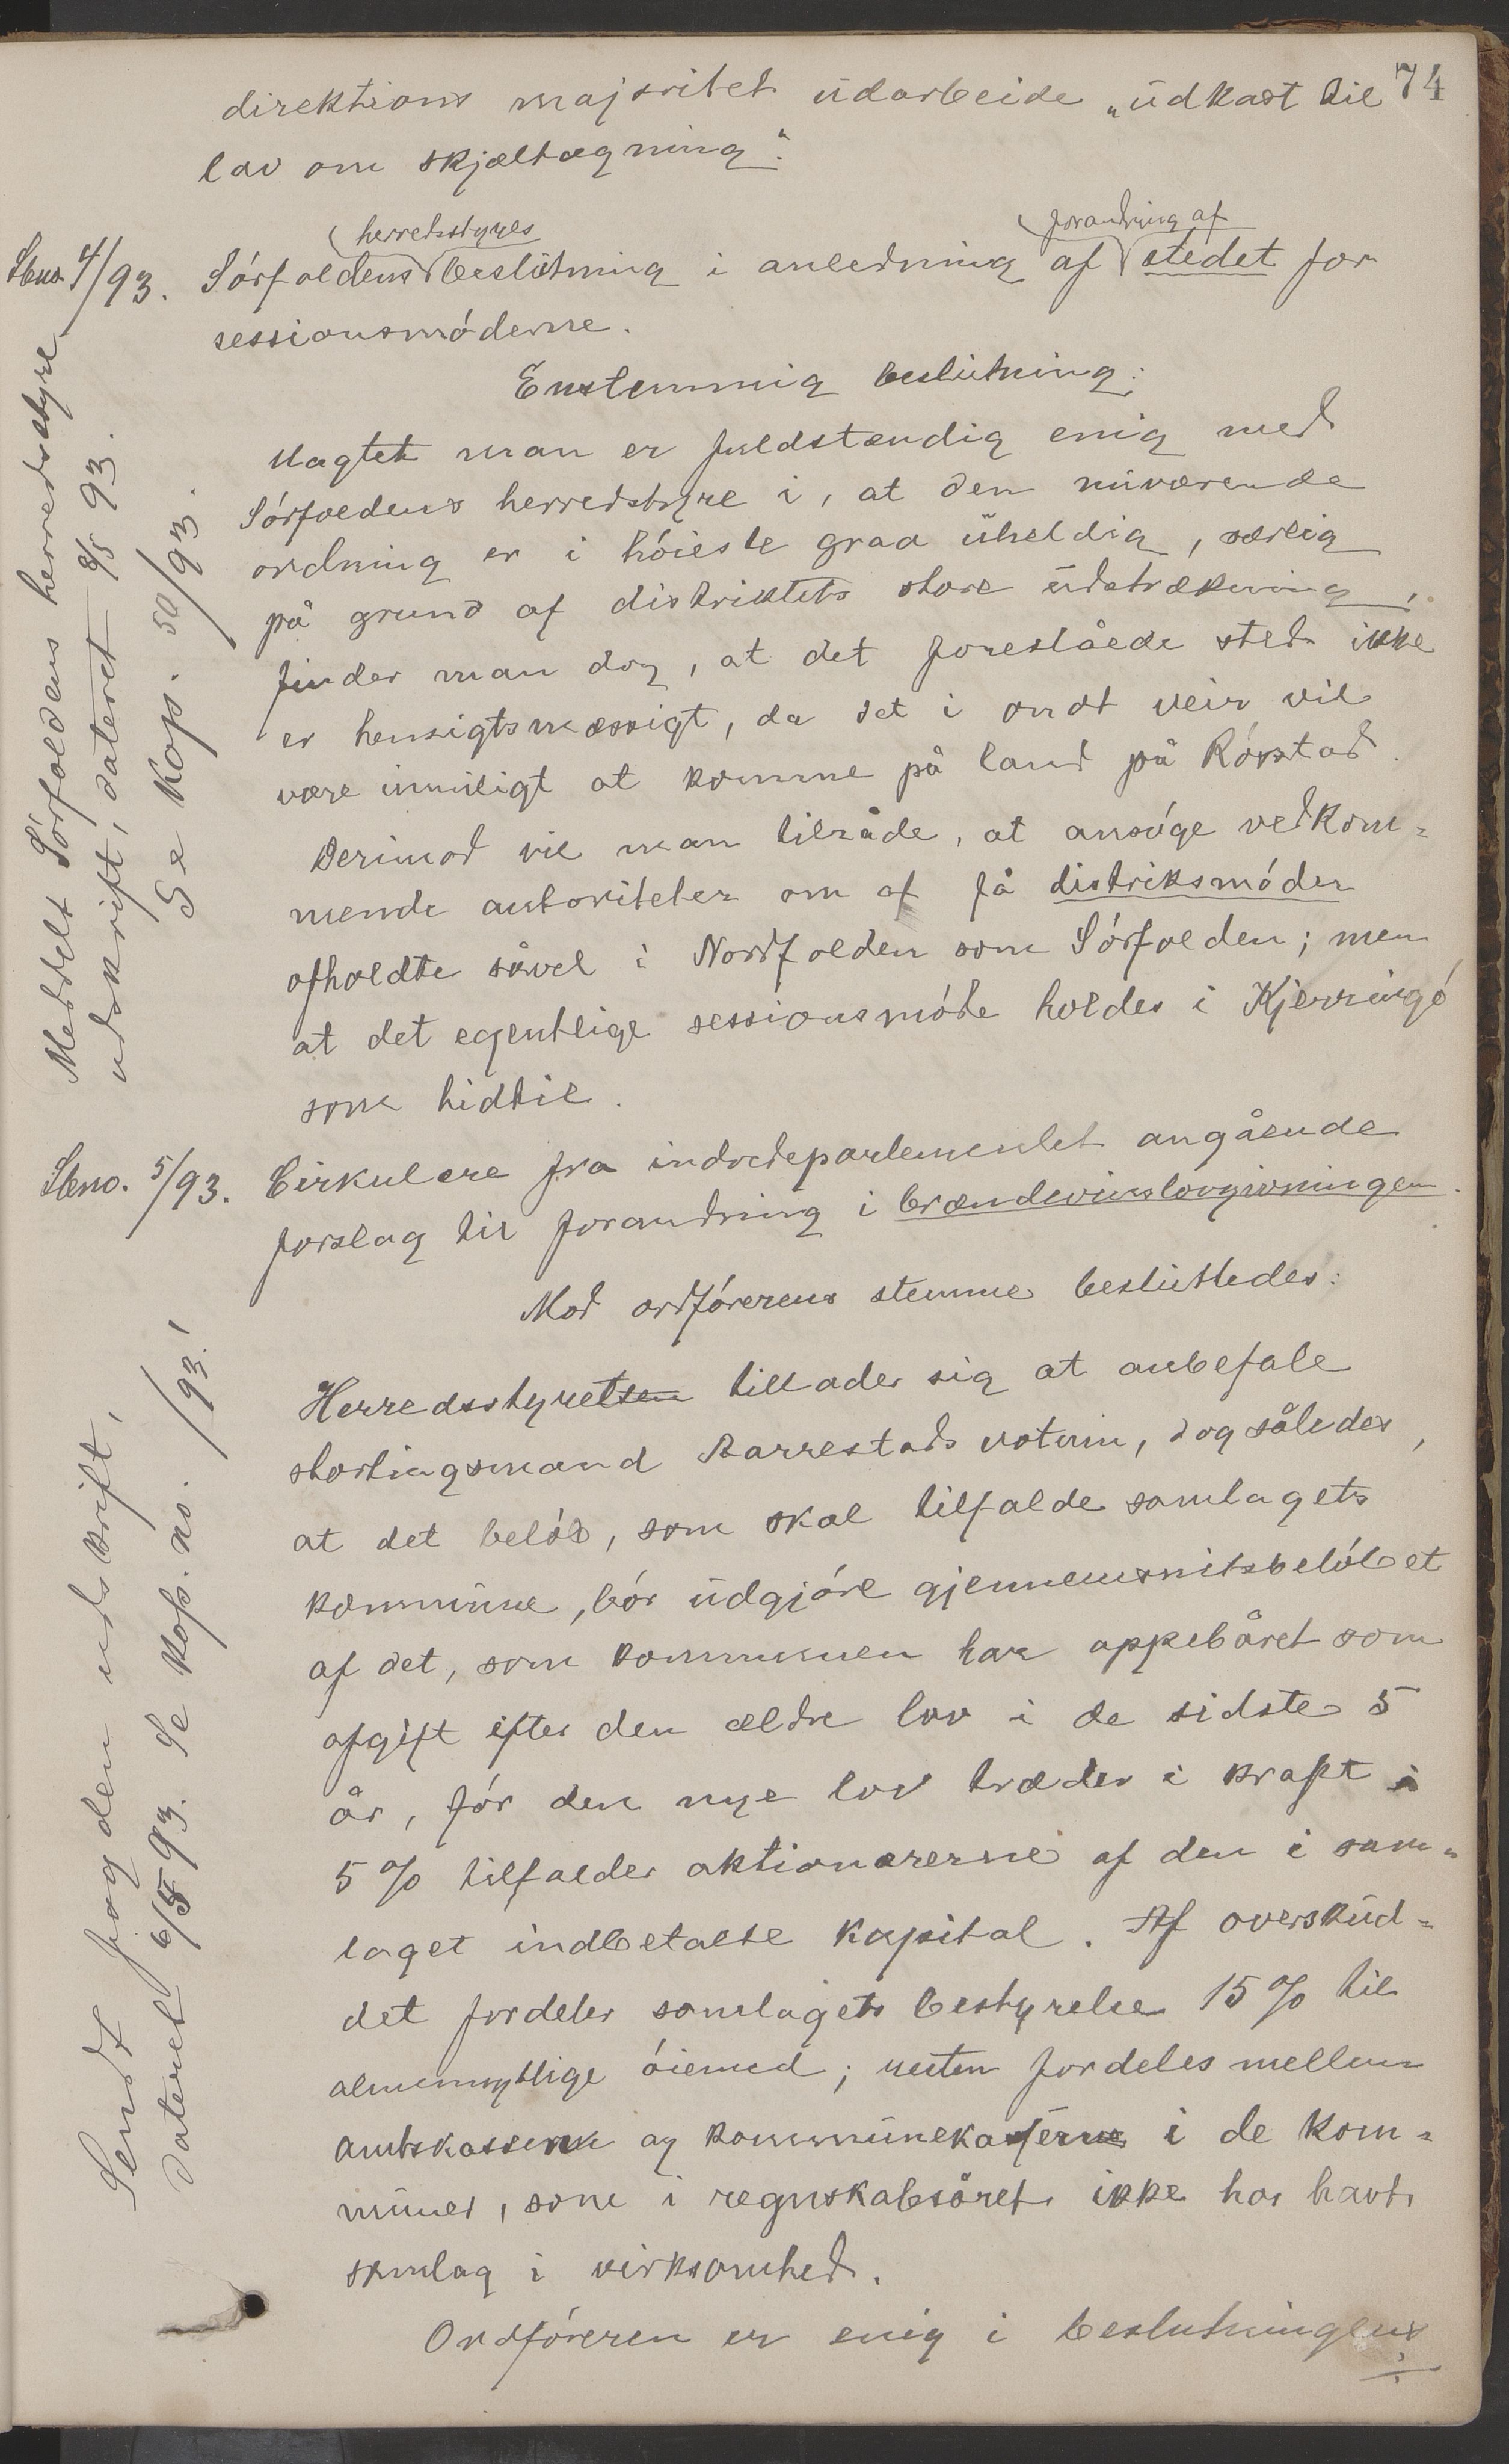 74
direktions majoritet udarbeide „udkast til
lov om skjæltægning“.
herredsstyres
forandring af
Sno. 4/93. Sórfoldens beslutning i anledning af stedet for
sessionsmóderne.
Enstemmig beslutning:
Uagtet man er fuldstændig enig med
Sórfoldens herredstyre i, at den nuværende
ordning er i hóieste grad uheldig, særlig
på grund af distriktets store udstrækning,
finder man dog, at det foreslåede sted ikke
er hensigtsmæssigt, da det i ondt veir vil
være umuligt at komme på land på Rórstad.
Derimod vil man tilråde, at ansóge vedkom-
mende autoriteter om af få distriksmóder
afholdte såvel i Nordfolden som Sórfolden; men
at det egentlige sessionsmóde holdes i Kjerringó
som hidtil.
Meddelt Sórfoldens herredsstyre
udskrift, dateret 8/5 93.
Se kop. 50/93.
Sno. 5/93. Cirkulære fra indredepartementet angående
forslag til forandring i brændevinslovgivningen.
Mod ordfórerens stemme besluttedes:
Herredsstyretsen tillader sig at anbefale
stortingsmand Aarrestads votum, dog således,
at det belób, som skal tilfalde samlagets
kommune, bór udgjóre gjennemsnitsbelóbet
af det, som kommunen har oppebåret som
afgift efter den ældre lov i de sidste 5
år, fór den nye lov træder i kraft i
5 % tilfalder aktionærerne af den i sam-
laget indbetalte kapital. Af overskud-
det fordeler samlagets bestyrelse 15 % til
almennyttige óiemed; resten fordeles mellem
amtskassen og kommunekasserne i de kom-
muner, som i regnskabsåret ikke har havt
samlag i virksomhed.
Ordfóreren er enig i beslutningens
Sendt fogden udskrift,
dateret 6/5 93. Se kop. no. /93!